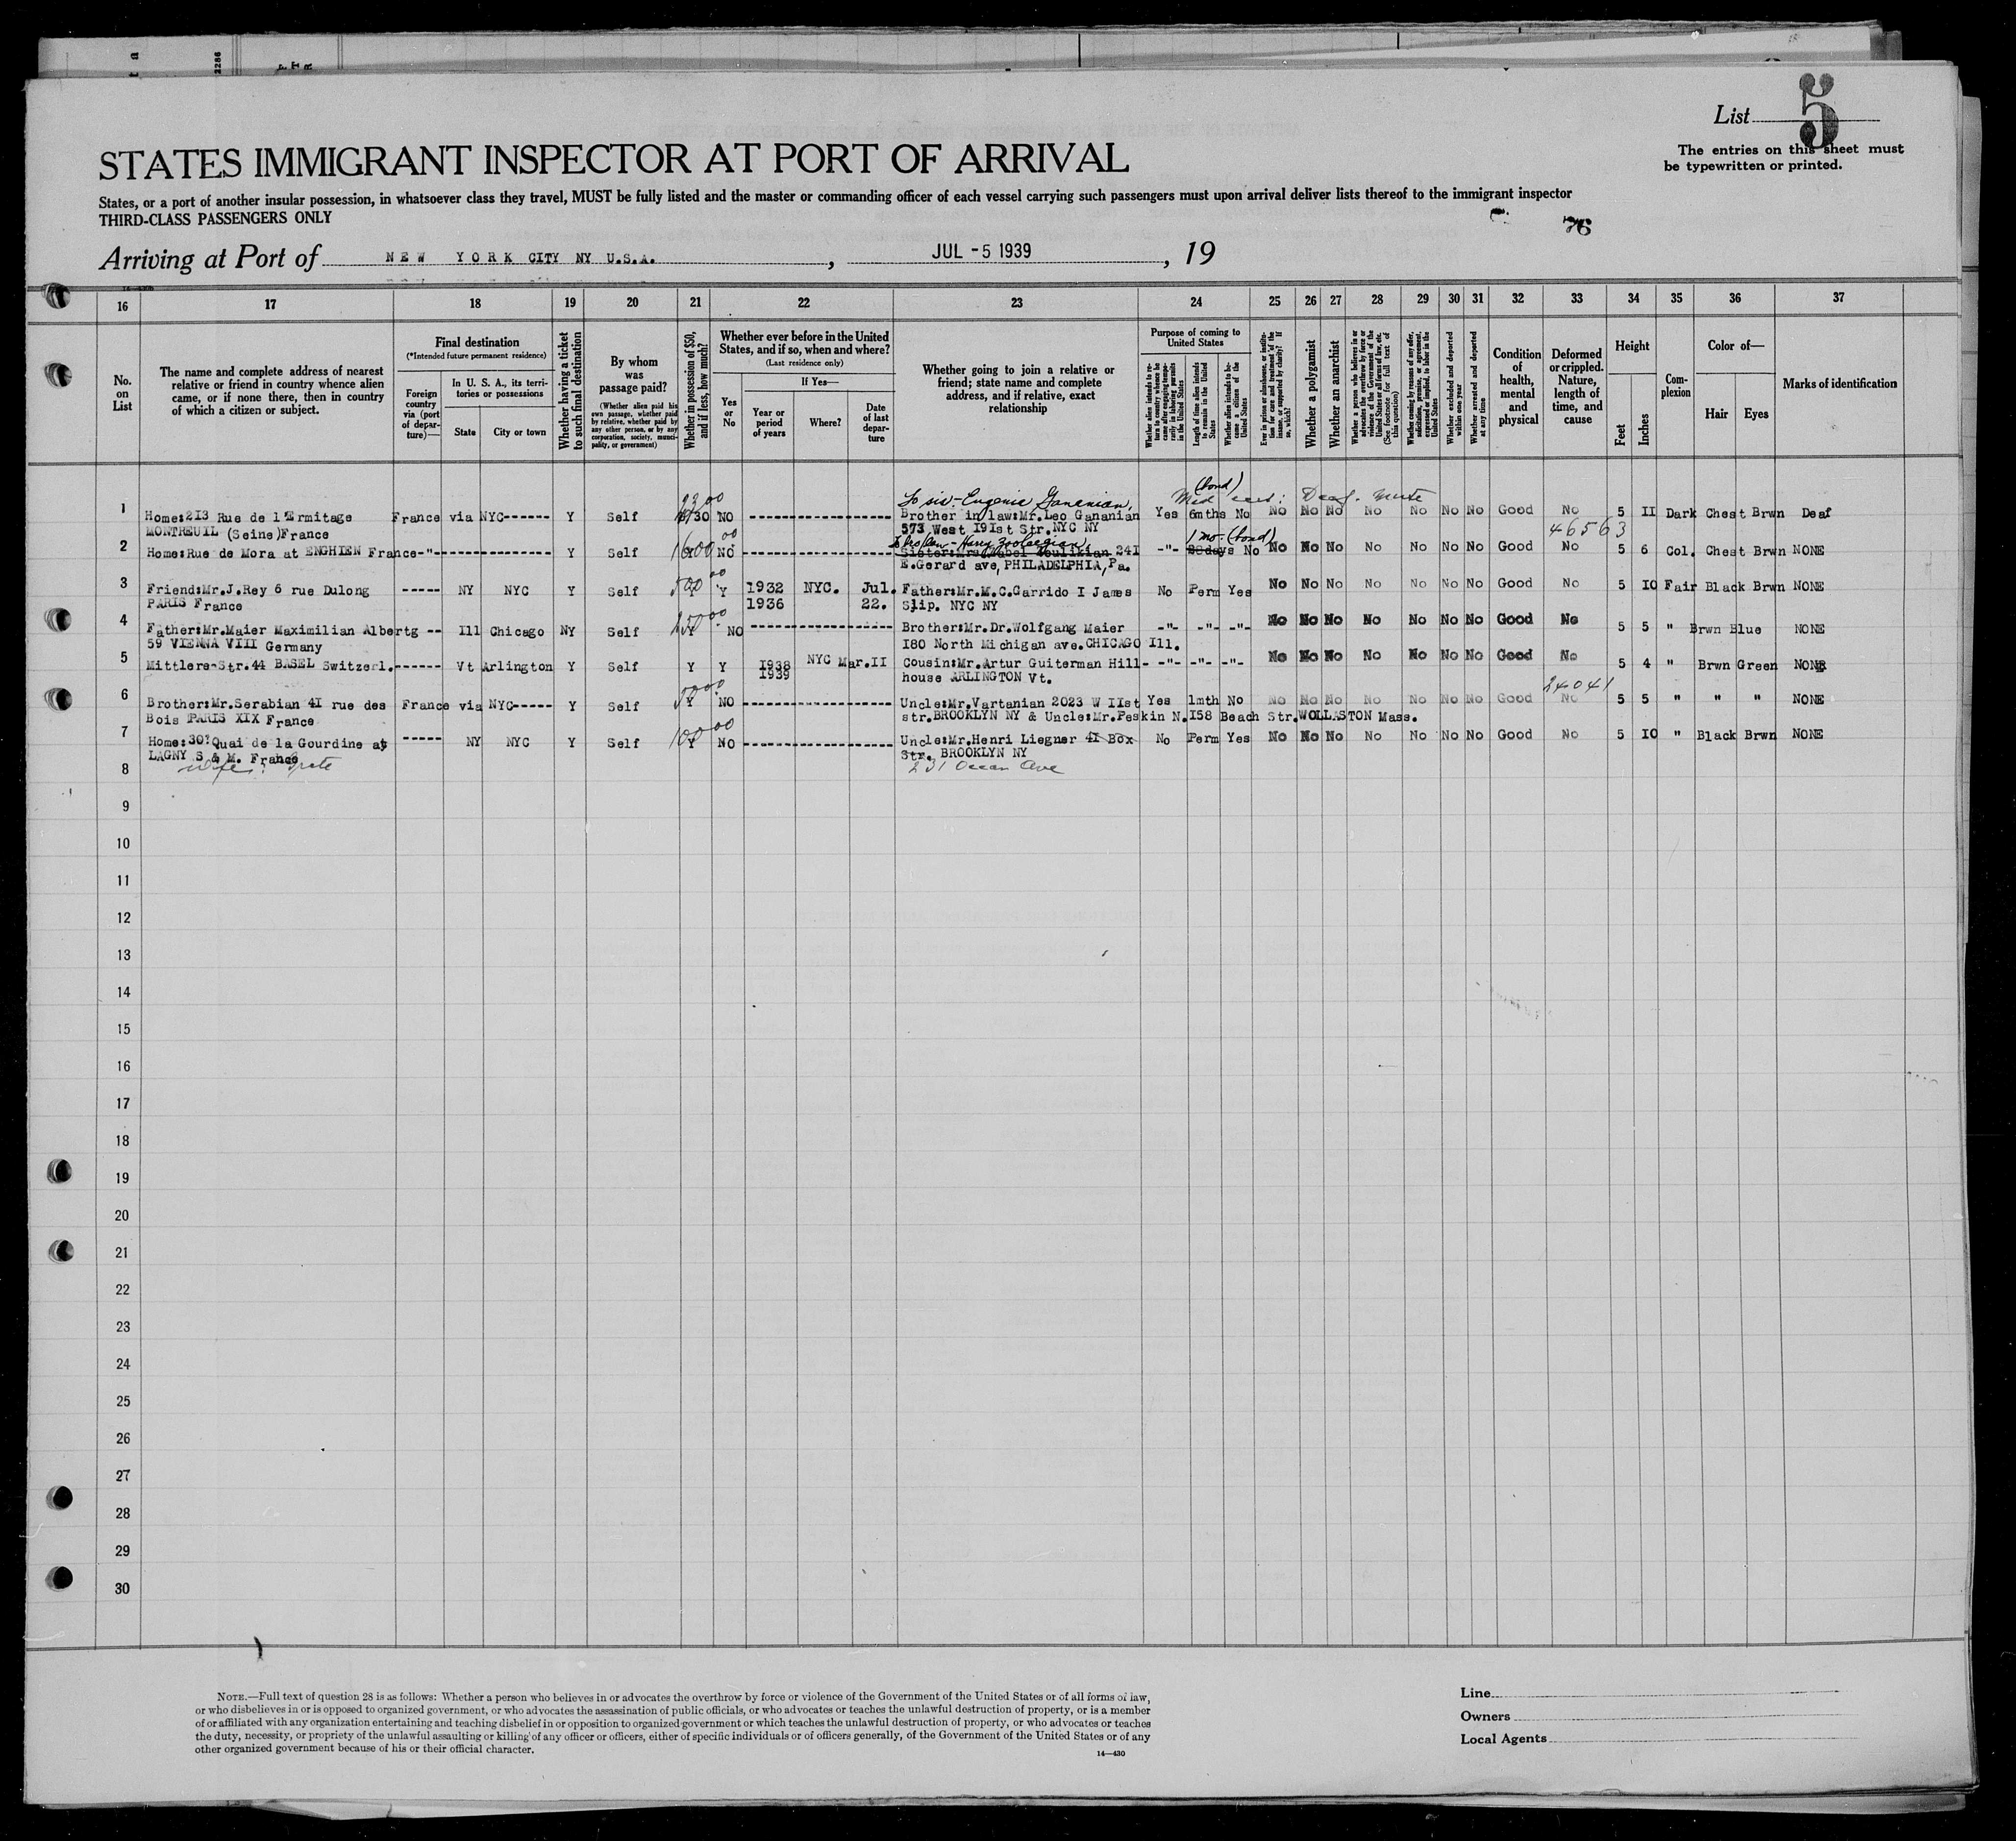 List 5
STATES IMMIGRANT INSPECTOR AT PORT OF ARRIVAL
The entries on this sheet must
be typewritten or printed.
States, or a port of another insular possession, in whatsoever class they travel, MUST be fully listed and the master or commanding officer of each vessel carrying such passengers must upon arrival deliver lists thereof to the immigrant inspector
THIRD-CLASS PASSENGERS ONLY
76
Arriving at Port of NEW YORK CITY NY U.S.A. , JUL -5 1939 , 19
16 17 18 19 20 21 22 23 24 25 26 27 28 29 30 31 32 33 34 35 36 37
No. on List
The name and complete address of nearest relative or friend in country whence alien came, or if none there, then in country of which a citizen or subject.
Final destination
(*Intended future permanent residence)
Foreign country via (port of departure)—
In U. S. A., its territories or possessions
State
City or town
Whether having a ticket to such final destination
By whom was passage paid?
(Whether alien paid his own passage, whether paid by relative, whether paid by any other person, or by any corporation, society, municipality, or government)
Whether in possession of $50, and if less, how much?
Whether ever before in the United States, and if so, when and where?
(Last residence only)
Yes or No
If Yes—
Year or period of years
Where?
Date of last departure
Whether going to join a relative or friend; state name and complete address, and if relative, exact relationship
Purpose of coming to United States
Whether alien intends to return to country whence he came after engaging temporarily in laboring pursuits in the United States
Length of time alien intends to remain in the United States
Whether alien intends to become a citizen of the United States
Ever in prison or almshouse, or institution for care and treatment of the insane, or supported by charity? If so, which?
Whether a polygamist
Whether an anarchist
Whether a person who believes in or advocates the overthrow by force or violence of the Government of the United States or all forms of law, etc. (See footnote for full text of this question)
Whether coming by reasons of any offer, solicitation, promise, or agreement, expressed or implied, to labor in the United States
Whether excluded and deported within one year
Whether arrested and deported at any time
Condition of health, mental and physical
Deformed or crippled. Nature, length of time, and cause
Height
Feet
Inches
Complexion
Color of—
Hair
Eyes
Marks of identification
23 00 To sis - Eugenie Gananian, (bond) Med cert: Deaf - Mute
1 Home:213 Rue de l'Ermitage France via NYC------ Y Self $/30 NO -------------------- Brother in law:Mr.Leo Gananian Yes 6mths No No No No No No No No Good No 5 II Dark Chest Brwn Deaf
MONTREUIL (Seine)France 573 West 19Ist Str.NYC NY 46563
bro law - Harry Zoolalgian, 1 mo. (bond)
2 Home:Rue de Mora at ENGHIEN France-"----------------- Y Self 1600 00 NO -------------------- Sister:Mrs.Mabel 24I -"- 28days No No No No No No No No Good No 5 6 Col. Chest Brwn NONE
E.Gerard ave, PHILADELPHIA, Pa.
3 Friend:Mr.J.Rey 6 rue Dulong ----- NY NYC Y Self 500 00 Y 1932 NYC. Jul. Father:Mr.M.C.Garrido I James No Perm Yes No No No No No No No Good No 5 IO Fair Black Brwn NONE
PARIS France 1936 22. Slip. NYC NY
4 Father:Mr.Maier Maximilian Albertg -- Ill Chicago NY Self 250 00 Y NO -------------------- Brother:Mr.Dr.Wolfgang Maier -"- -"- -"- No No No No No No No Good No 5 5 " Brwn Blue NONE
59 VIENNA VIII Germany I80 North Michigan ave.CHICAGO Ill.
5 Mittlere-Str.44 BASEL Switzerl.------ Vt Arlington Y Self Y Y 1938 NYC Mar.II Cousin:Mr.Artur Guiterman Hill- -"- -"- -"- No No No No No No No Good No 5 4 " Brwn Green NONE
1939 house ARLINGTON Vt.
24041
6 Brother:Mr.Serabian 4I rue des France via NYC----- Y Self Y NO -------------------- Uncle:Mr.Vartanian 2023 W IIst Yes 1mth No No No No No No No No Good No 5 5 " " " NONE
Bois PARIS XIX France str.BROOKLYN NY & Uncle:Mr.Peskin N.I58 Beach Str.WOLLASTON Mass.
7 Home:30? Quai de la Gourdine at ----- NY NYC Y Self 100 00 Y NO -------------------- Uncle:Mr.Henri Liegner 4I Box No Perm Yes No No No No No No No Good No 5 IO " Black Brwn NONE
LAGNY S & M. France Str. BROOKLYN NY
8 wife: Grete 231 Ocean Ave
9
10
11
12
13
14
15
16
17
18
19
20
21
22
23
24
25
26
27
28
29
30
NOTE.—Full text of question 28 is as follows: Whether a person who believes in or advocates the overthrow by force or violence of the Government of the United States or of all forms of law,
or who disbelieves in or is opposed to organized government, or who advocates the assassination of public officials, or who advocates or teaches the unlawful destruction of property, or is a member
of or affiliated with any organization entertaining and teaching disbelief in or opposition to organized government or which teaches the unlawful destruction of property, or who advocates or teaches
the duty, necessity, or propriety of the unlawful assaulting or killing of any officer or officers, either of specific individuals or of officers generally, of the Government of the United States or of any
other organized government because of his or their official character.
14—430
Line
Owners
Local Agents